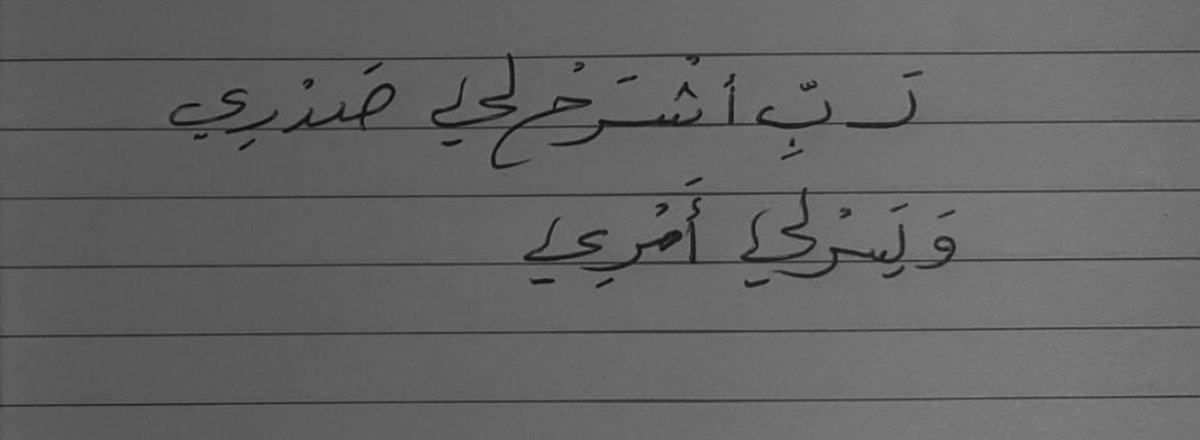 رَبِّ ٱشْرَحْ لِي صَدْرِي
وَيَسِّرْ لِي أَمْرِي